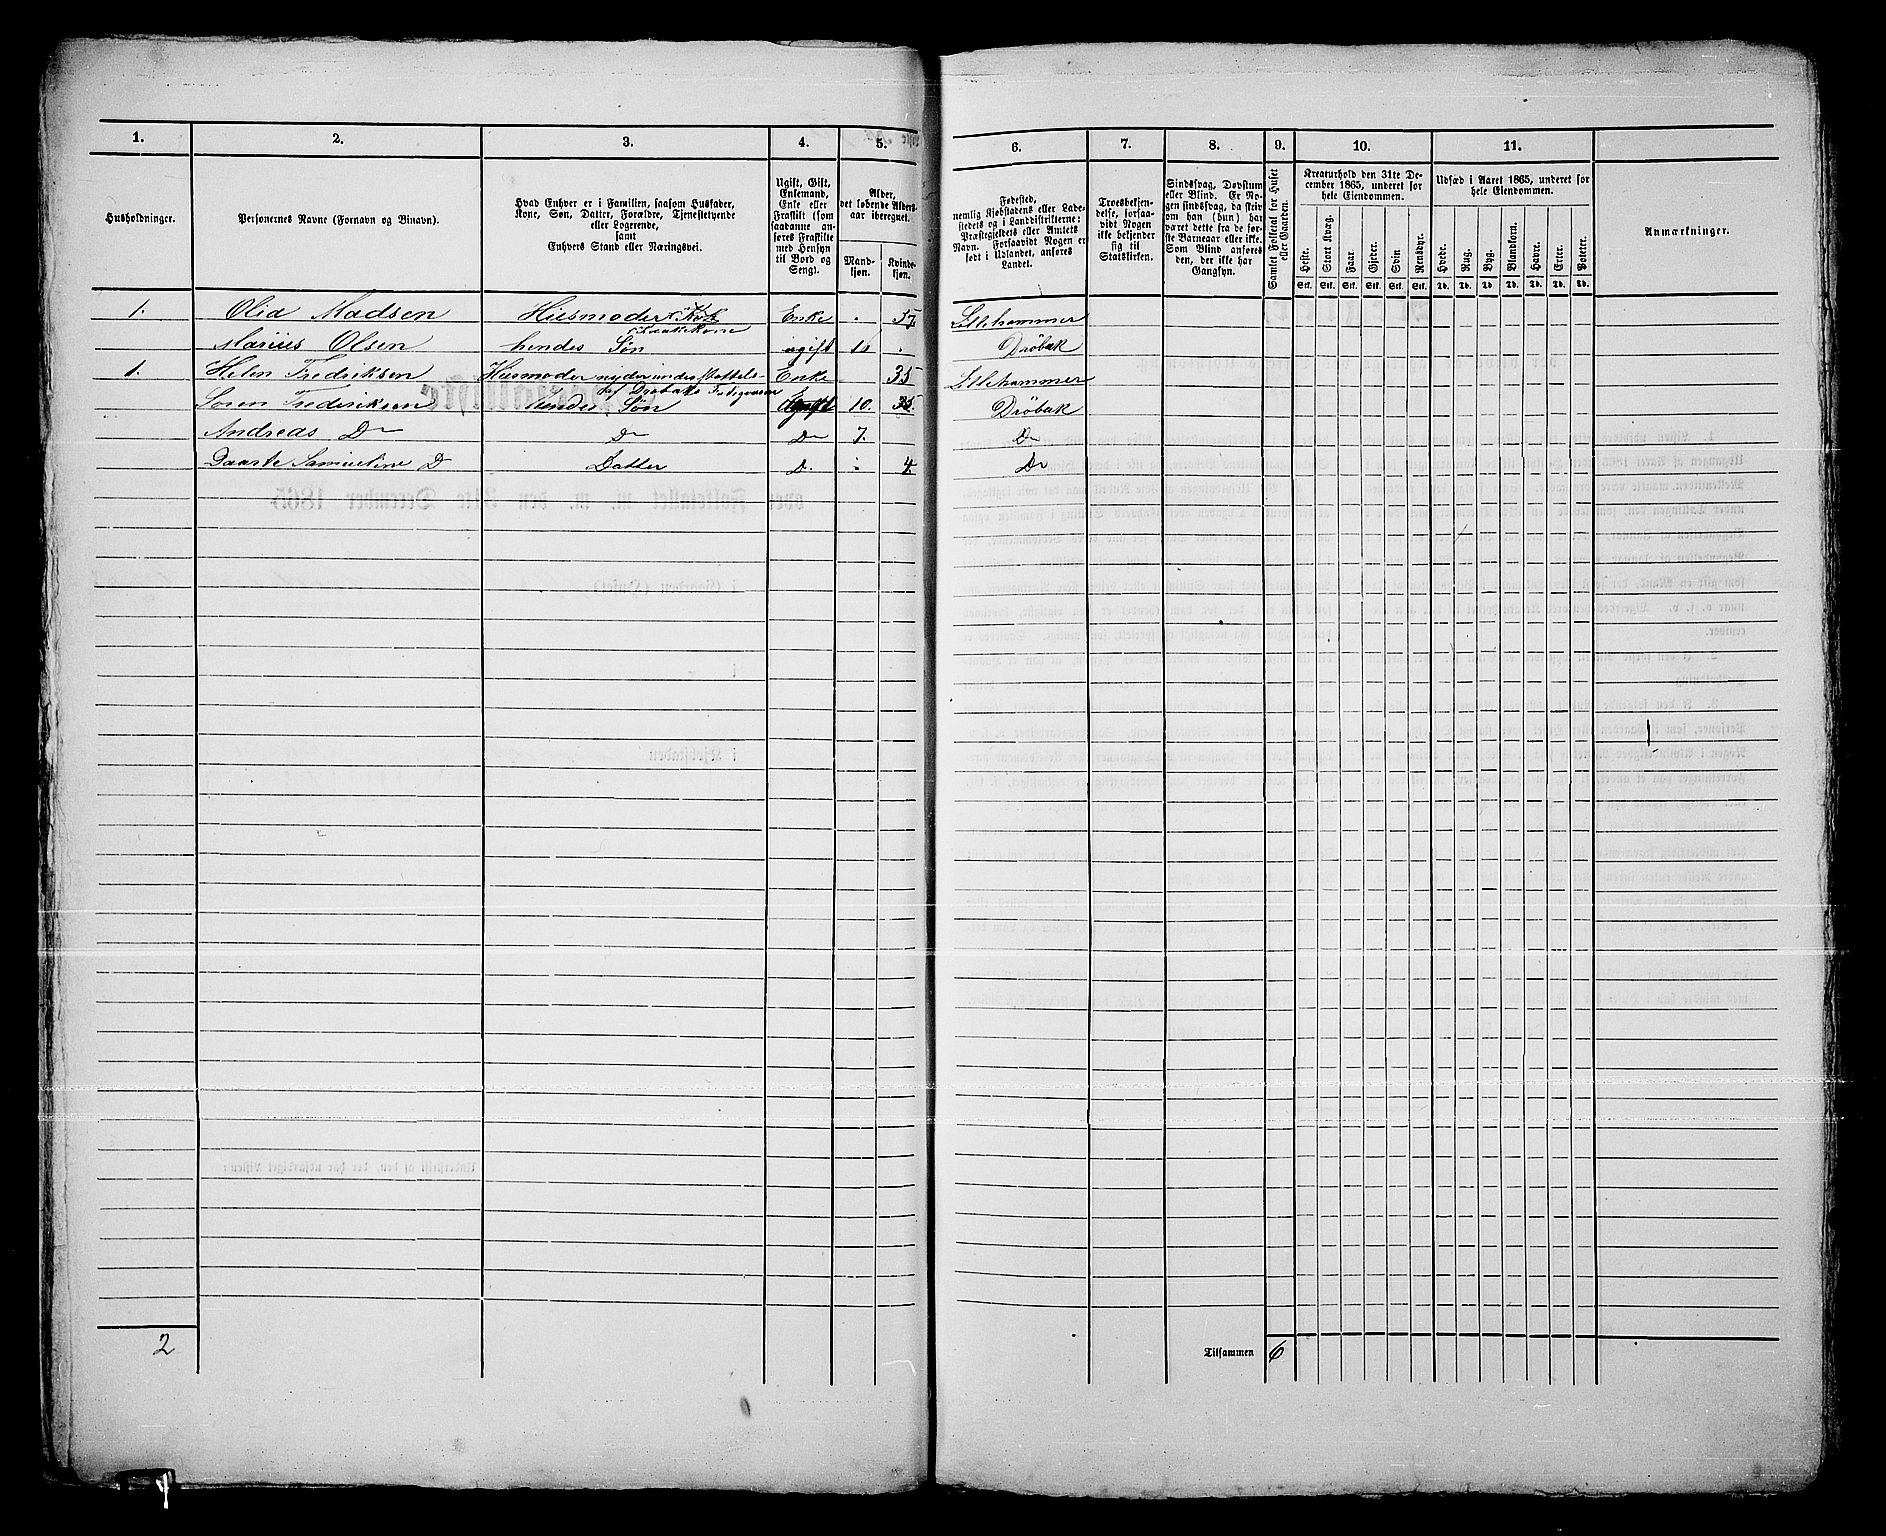 1. 2. 3. 4. 5. 6. 7. 8. 9. 10. 11.
Husholdninger.
Personernes Navne (Fornavn og Binavn).
Hvad Enhver er i Familien, saasom Husfader,
Kone, Søn, Datter, Forældre, Tjenestetyende
eller Logerende,
samt
Enhvers Stand eller Næringsvei.
Ugift, Gift,
Enkemand,
Enke eller
Fraskilt (som
saadanne an-
føres Fraskilte
med Hensyn
til Bord og
Seng).
Alder,
det løbende Alders-
aar iberegnet.
Mand-
kjøn.
Kvinde-
kjøn.
Fødested,
nemlig Kjøbstadens eller Lade-
stedets og i Landdistrikterne:
Præstegjeldets eller Amtets
Navn. Forsaavidt Nogen er
født i Udlandet, anføres
Landet.
Troesbekjen-
delse, forsaa-
vidt Nogen
ikke bekjender
sig til
Statskirken.
Sindssvag, Døvstum
eller Blind. Er No-
gen sindssvag, da skriv
om han (hun) har
været dette fra de før-
ste Barneaar eller ikke.
Som Blind anføres
den, der ikke har
Gangsyn.
Samlet Folketal for Huset
eller Gaarden.
Kreaturhold den 31te De-
cember 1865, underet for
hele Eiendommen.
Heste. Stort Kvæg. Faar. Gjeder. Svin. Rensdyr.
Stk. Stk. Stk. Stk. Stk. Stk.
Udsæd i Aaret 1865, underet for
hele Eiendommen.
Hvede. Rug. Byg. Blandkorn. Havre. Erter. Poteter.
Td. Td. Td. Td. Td. Td. Td.
Anmærkninger.
1. Olia Madsen Husmoder Enke . 57 Lillehammer
Marius Olsen hendes Søn ugift 16 . Drøbak
1. Helen Fredriksen Husmoder nyder understøttels- Enke 35 Lillehammer
af Drøbaks Fatigvæsen
Søren Frederiksen hendes Søn 10. Drøbak
Andreas Do Do Do 7. Do
Samueline D Datter D. 4 Do
2
Tilsammen 6